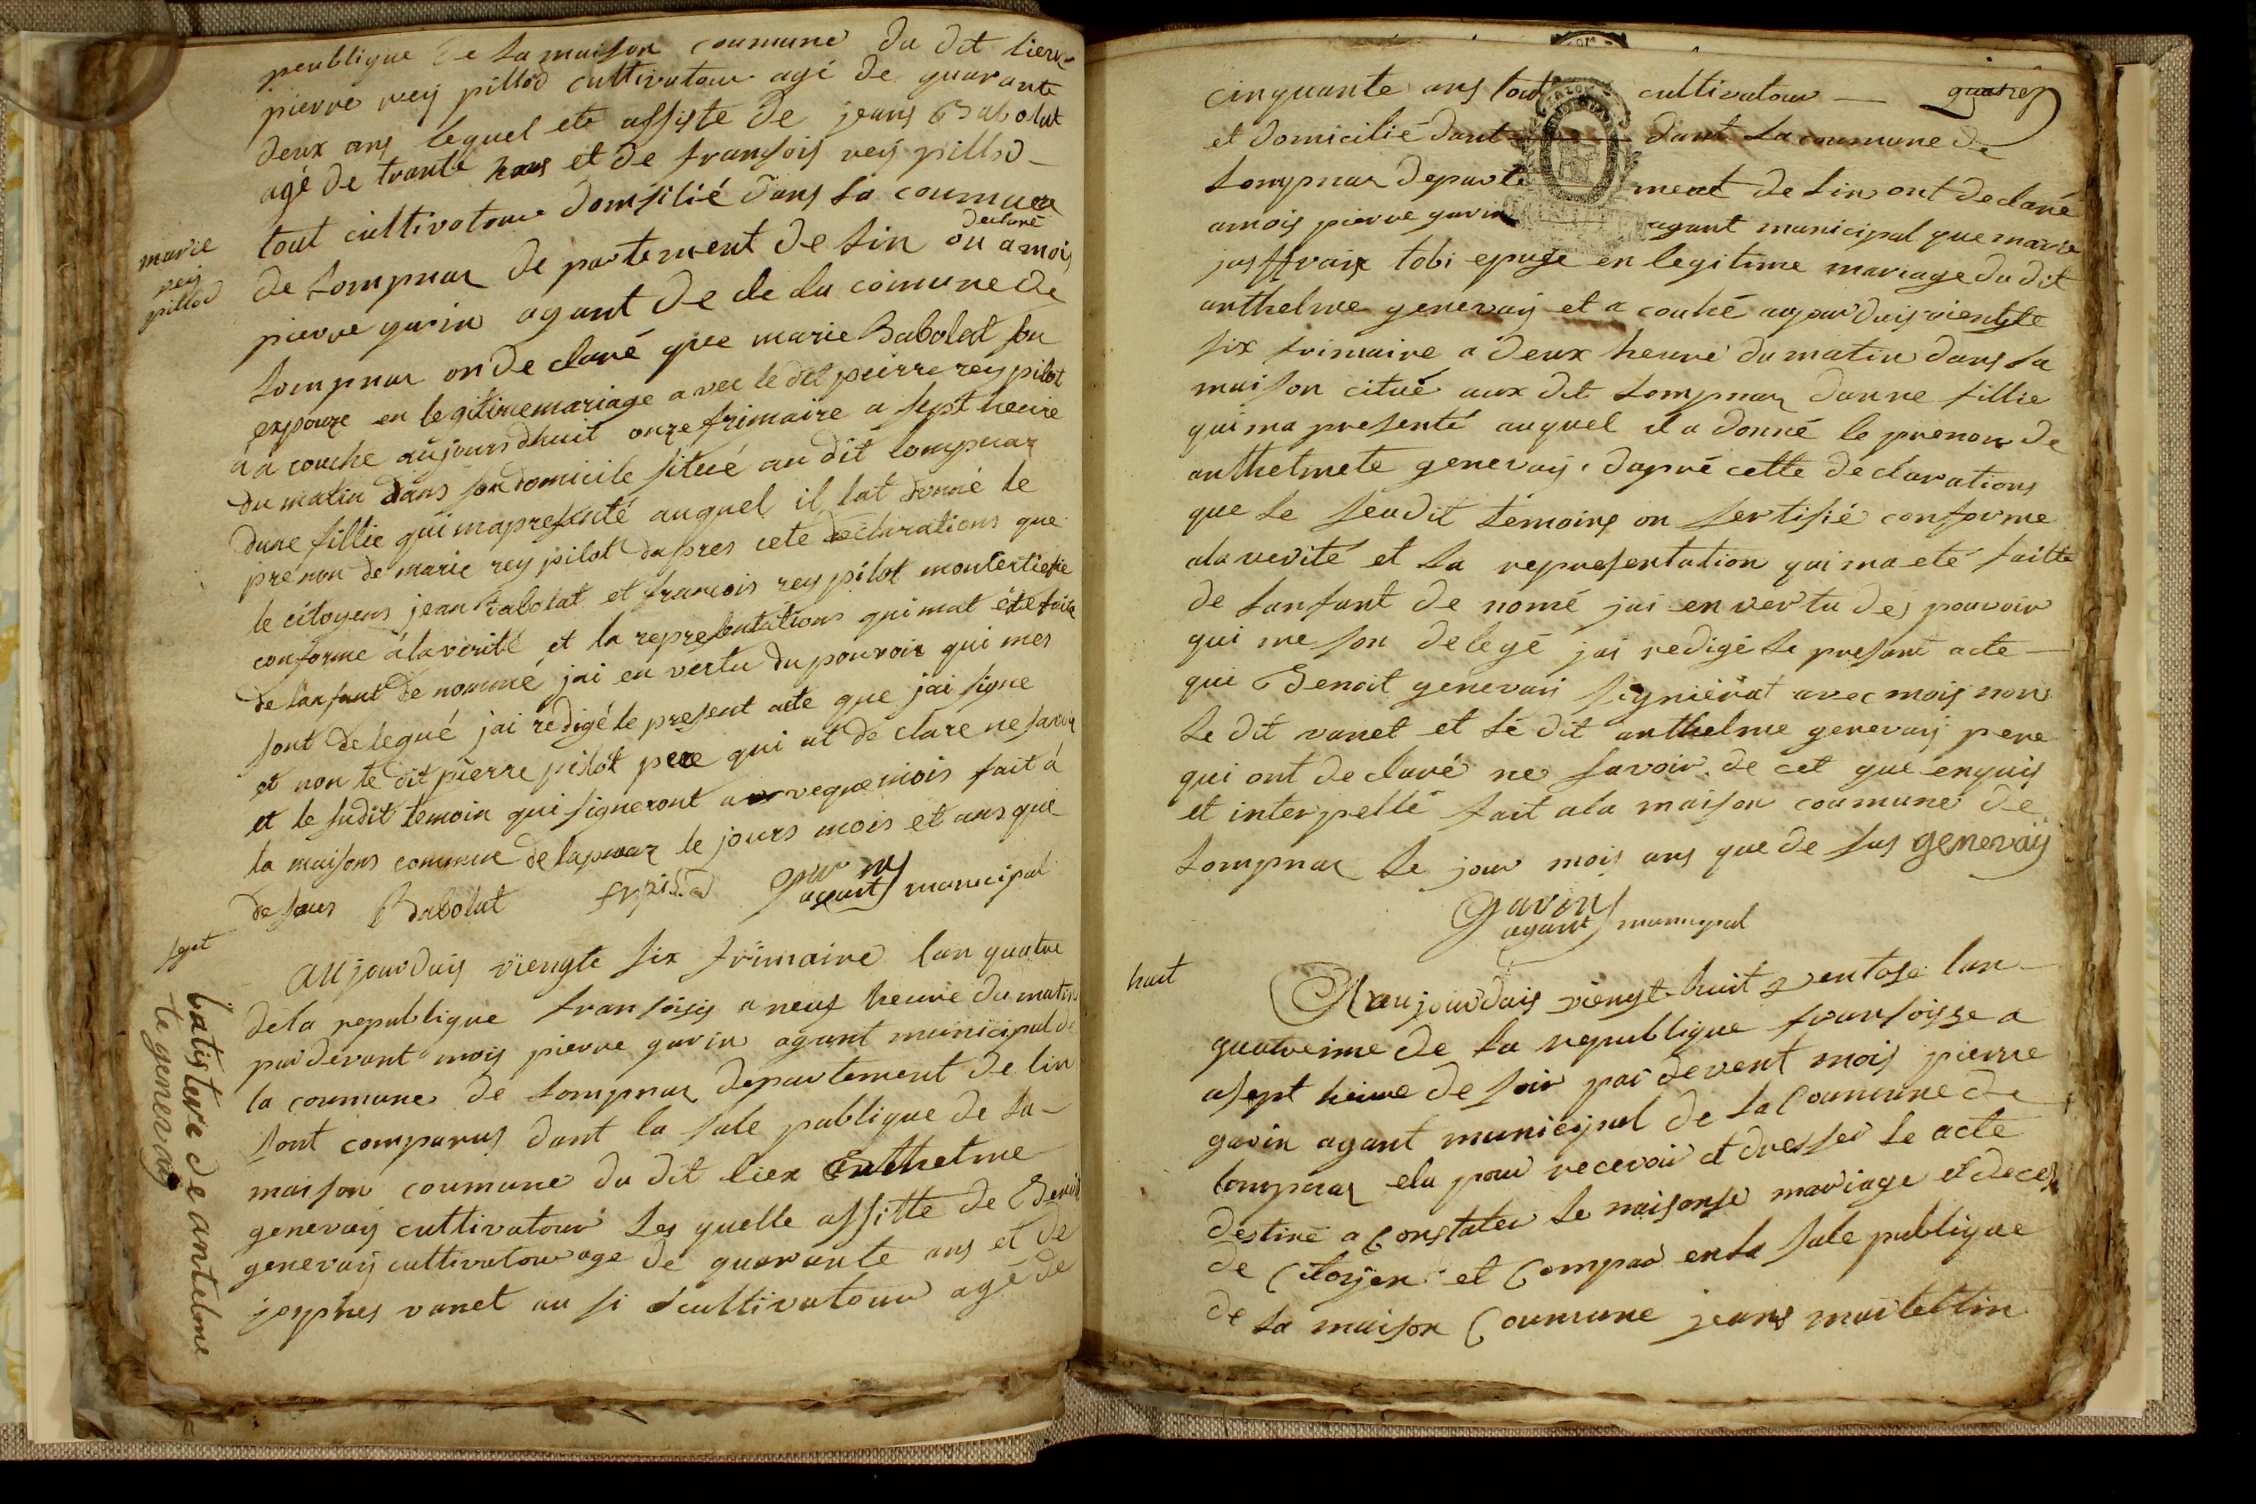 peublique de la maison coumune du dit lieux
pierre rey pillod cultivatour agé de quarante
deux ans lequel ete assiste de jeans Babolat
agé de trante hans et de fransois rey pillod
tout cultivatour domsilié dans la coumune
declaré
de Lompnas de partement de Lin on a mois
pierre gurin agant de de la comune de
Lompnas on de claré que marie Babolat son
expouze en legitime mariage avec le dit pierre rey pilot
a a couche aujourdhuit onze frimaire a sept heure
du matin dans son domicile situé au dit lompnaz
dune fillie qui mapresanté auquel il lat donné le
prenon de marie rey pilot dapres cete declarations que
le citoyens jean babolat et francois rey pilot montertiefie
conforme à la verité et la representations qui mat éte faite
de lanfant de nommé jai en vertu du pouvoir qui mes
sont delegué jai redigé le present acte que jai signe
et non le dit pierre pilot pere qui at de clare ne savoir
et le sudit temoin qui signeront avveque mois fait à
la maisons commune de lapnaz le jours mois et ans que
de sous Babolat frpilod gurin
agant municipal
marie
rey
pillod
sept
batistere de antelme
te genevay
Aujourduis viengte six frimaire lan quatre
de la republique fransoisis a neuf heure du matin
par devant mois pierre gurin agant municipal de
la coumune de Lompnas departement de Lin
sont comparus dant la sale publique de la
maison coumune du dit liex anthelme
genevay cultivatour les quelle assitte de Benoit
genevay cultivatour age de quarante ans et de
josphes vanet au si cultivatour agé de
cinquante ans tout cultivatour quatre
et domicilié dant dant la coumune de
Lompnas departement de Lin ont declaré
amois pierre gurin agant municipal que marie
jusffraix tobi epuse en legitime mariage du dit
anthelme genevay et a couhé aujourduis viengte
six frimaire a deux heure du matin dans sa
maison citué aux dit Lompnaz dunne fillie
qui ma presenté auquel il a donné le prenon de
anthelmete genevay dapré cette declarations
que le seudit témoins on sertifié conforme
ala verité et la representation qui ma eté faitte
de lanfant de nomé jai en vertu des pouvoir
qui me son delegé jai redigé le presant acte
qui Benoit genevay signiérat avec mois non
le dit vanet et le dit anthelme genevay pere
qui ont declaré ne savoir de cet que enquis
et interpellé fait ala maison coumune de
Lompnas le jour mois ans que de sus genevay
gavin
agant municipal
huit
aujourduis viengt huit ventose lan
quatreime de la republique fransoisse a
asept heure de soir par devent mois pierre
gurin agant municipal de la Coumune de
lompnaz elu pour recevoir et dresser le acte
destiné a Constater le naisanse mariage et deces
de Citoyen et Compar en la sale publique
de la maison Coumune jeans martettin